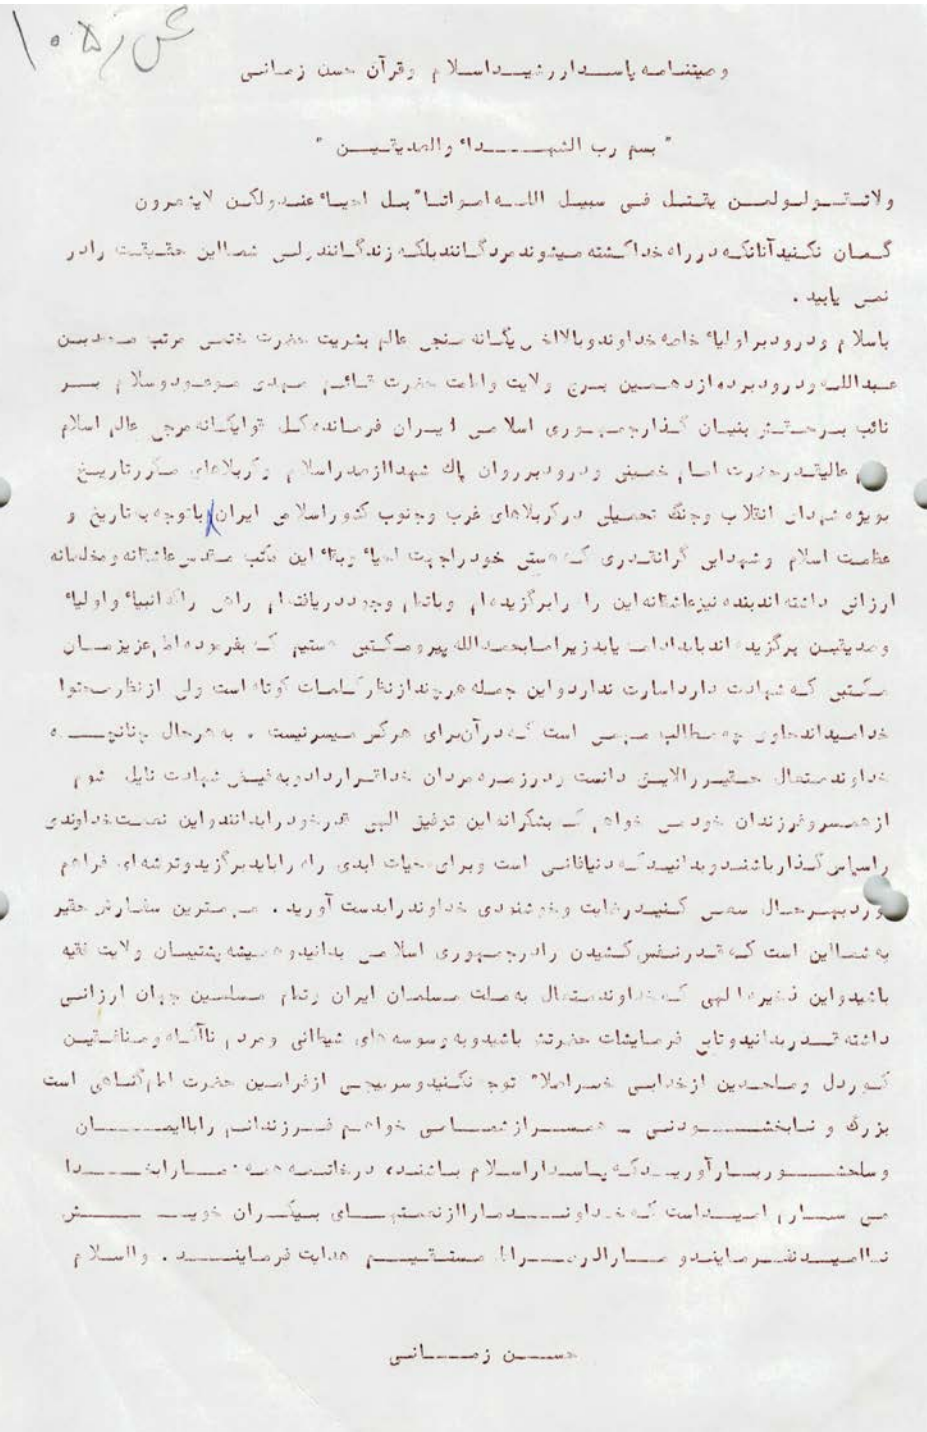 ش ر ۱۰۵
وصیتنامه پاسدار رشید اسلام وقرآن حسن زمانی
" بسم رب الشهداء والصدیقین "
ولاتقولو لمن یقتل فی سبیل الله امواتا" بل احیاء عند ولکن لایشعرون
گمان نکنید آنانکه در راه خدا کشته میشوند مردگانند بلکه زندگانند ولی شما این حقیقت را در
نمی یابید .
باسلام ودرود بر اولیاء خاصه خداوند وبالاخص یگانه منجی عالم بشریت حضرت ختمی مرتب محمدبن
عبدالله ودرود بر دوازدهمین برج ولایت وامامت حضرت قائم مهدی موعود وسلام بر
نائب برحقش بنیان گذار جمهوری اسلامی ایران فرمانده کل قوا یگانه مرجی عالم اسلام
عالیقدر حضرت امام خمینی ودرود بر روان پاک شهدا از صدر اسلام وکربلاهای مکرر تاریخ
بویژه شهدای انقلاب وجنگ تحمیلی در کربلاهای غرب وجنوب کشور اسلامی ایران باتوجه به تاریخ و
عظمت اسلام وشهدای گرانقدری که هستی خود را جهت احیاء وبقاء این مکتب مقدس عاشقانه ومخلصانه
ارزانی داشته اند بنده نیز عاشقانه این راه را برگزیده ام وباتمام وجود دریافته ام راهی راکه انبیاء واولیاء
وصدیقین برگزیده اند باید ادامه یابد زیرا ما بحمدالله پیرو مکتبی هستیم که بفرموده امام عزیزمان
مکتبی که شهادت دارد اسارت ندارد واین جمله هرچند از نظر کلمات کوتاه است ولی از نظر محتوا
خدا میداند حاوی چه مطالب مهمی است که درآن برای هرکس میسر نیست . به هرحال چنانچه
خداوند متعال حقیر را لایق دانست ودر زمره مردان خدا قرار داد وبه فیض شهادت نایل شوم
از همسر وفرزندان خود می خواهم که بشکرانه این توفیق الهی قدر خود را بدانند واین نعمت خداوندی
را سپاس گذار باشند وبدانید که دنیا فانی است وبرای حیات ابدی راه را باید برگزید وتوشه ای فراهم
آورد بهرحال سعی کنید رضایت وخوشنودی خداوند را بدست آورید . مهمترین سفارش حقیر
به شما این است که قدر نفس کشیدن را در جمهوری اسلامی بدانید وهمیشه پشتیبان ولایت فقیه
باشید واین ذخیره الهی که خداوند متعال به ملت مسلمان ایران وتمام مسلمین جهان ارزانی
داشته قدر بدانید وتابع فرمایشات حضرتش باشید وبه وسوسه های شیطانی ومردم ناآگاه ومنافقین
کوردل وملحدین از خدا بی خبر اصلا" توجه نکنید وسرپیچی از فرامین حضرت امام گناهی است
بزرگ و نابخشودنی ـ همسرم از شما می خواهم فرزندانم را باایمان
وسلحشور بار آورید که پاسدار اسلام باشند، درخاتمه همه شما را بخدا
می سپارم امید است که خداوند ما را از نعمتهای بیکران خویش
ناامید نفرمایند و ما را الی صراط مستقیم هدایت فرمایند . والسلام
حسن زمانی